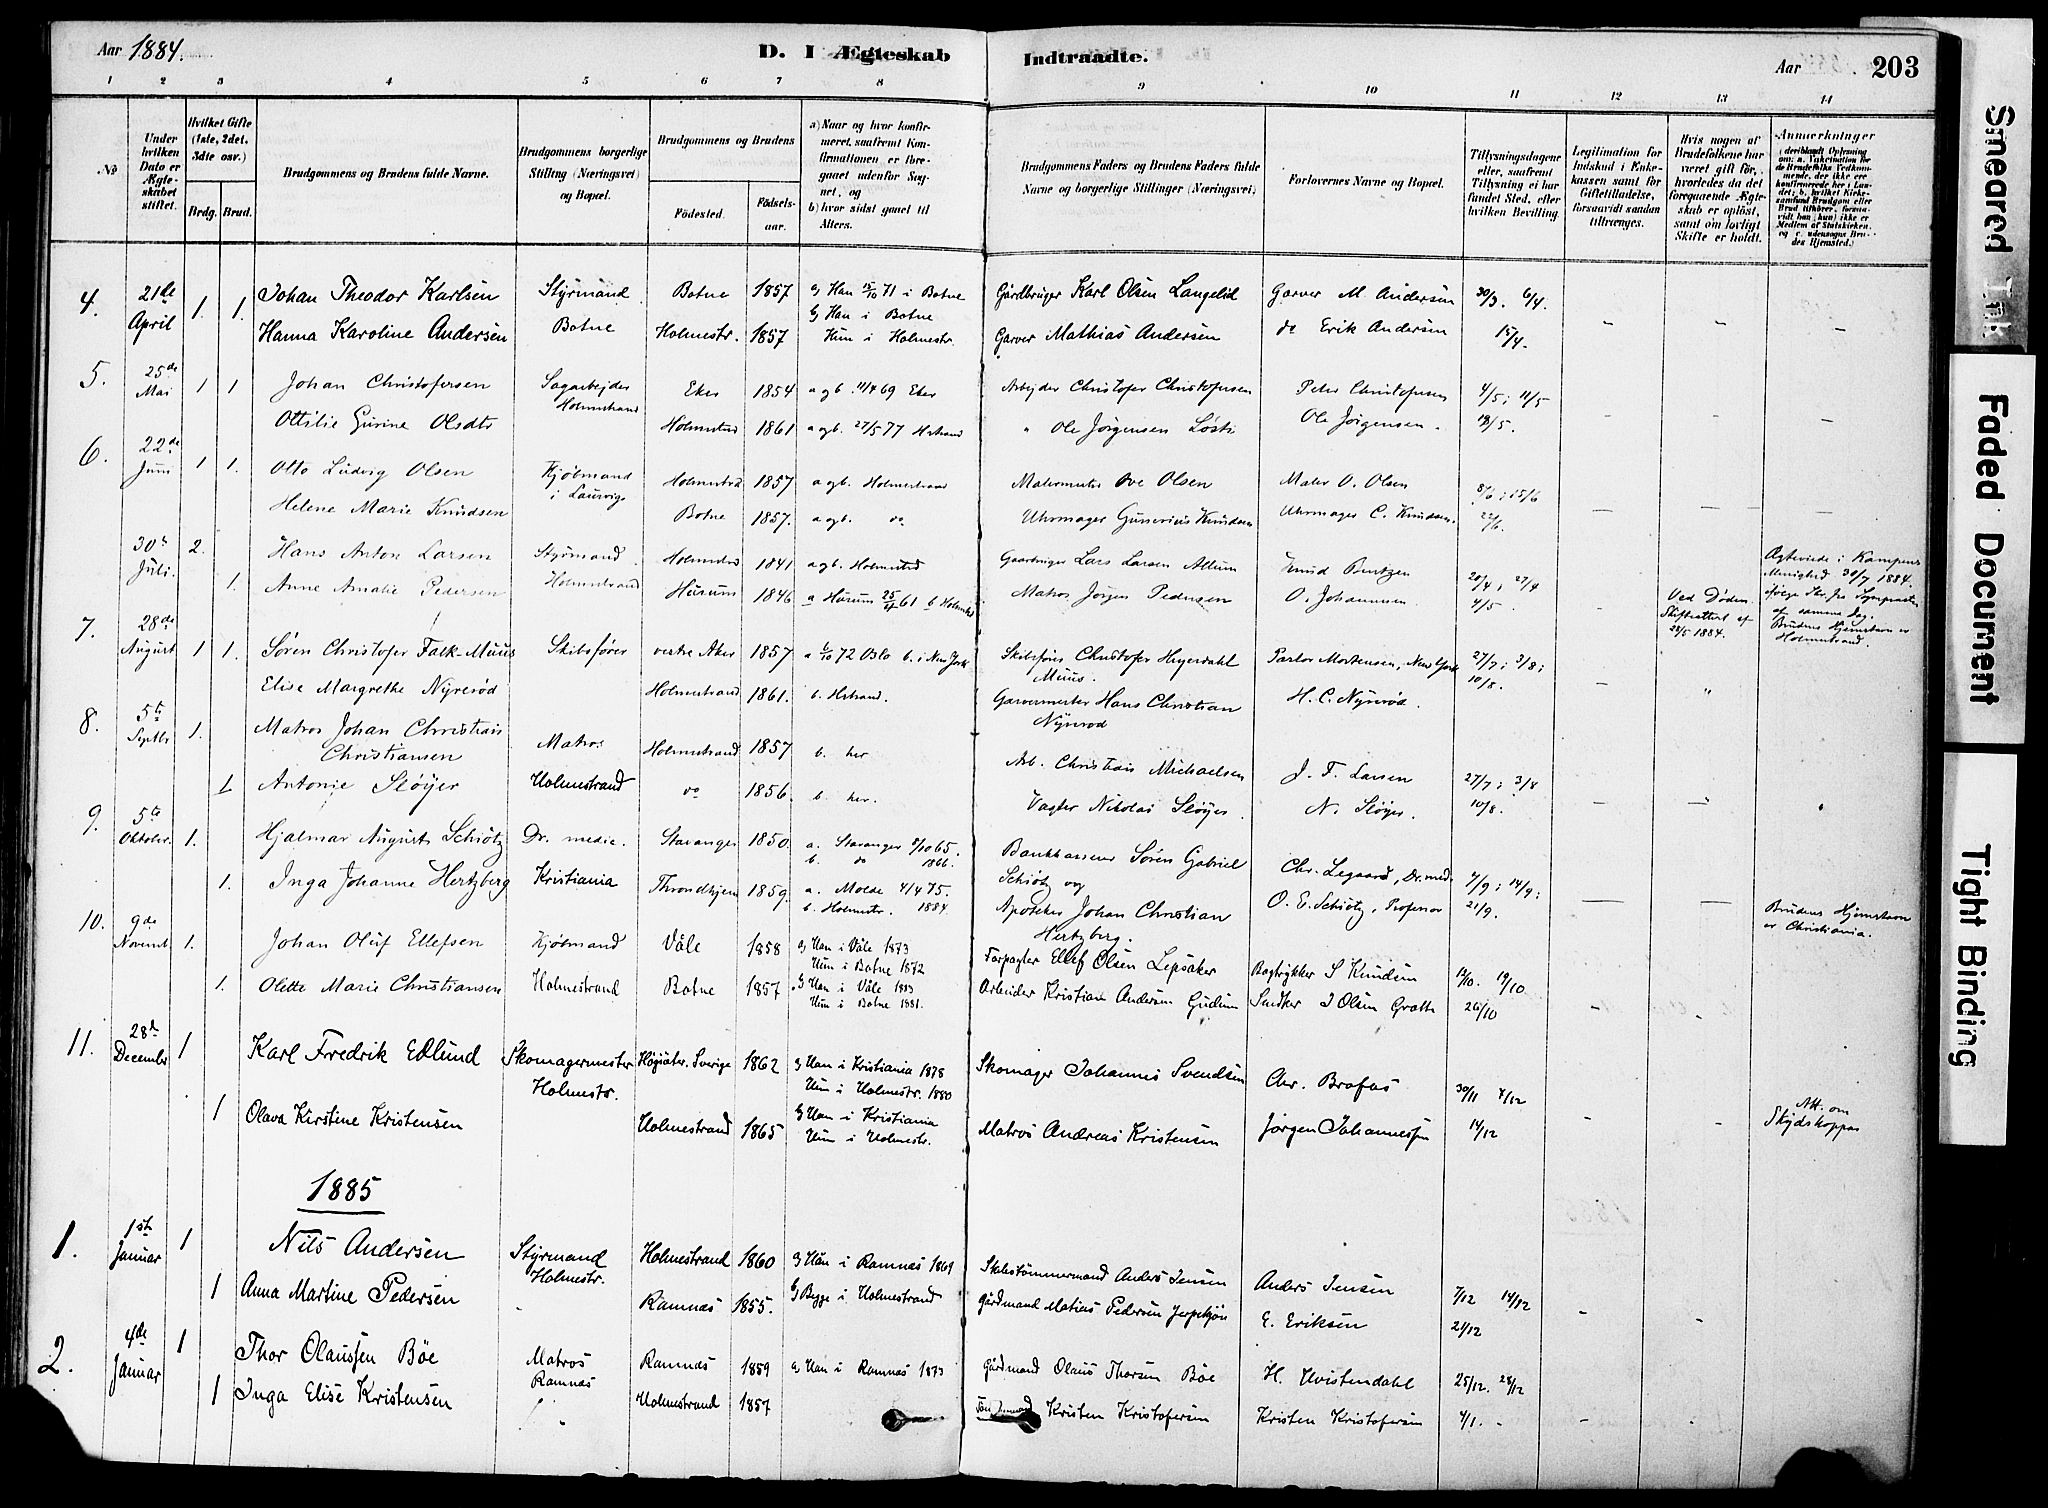 Aar 1884.
D. I Ægteskab Indtraadte.
Aar 203
1 2 3 4 5 6 7 8 9 10 11 12 13 14
No
Under hvilken Dato er Ægteskabet stiftet.
Hvilket Gifte (1ste, 2det, 3die osv.)
Brdg. Brud.
Brudgommens og Brudens fulde Navne.
Brudgommens borgerlige Stilling (Næringsvei) og Bopæl.
Brudgommens og Brudens
Fødested. Fødselsaar.
a) Naar og hvor konfirmeret, saafremt Konfirmationen er foregaaet udenfor Sognet, og
b) hvor sidst gaaet til Alters.
Brudgommens Faders og Brudens Faders fulde Navne og borgerlige Stillinger (Næringsvei).
Forlovernes Navne og Bopæl.
Tillysningsdagene eller, saafremt Tillysning ei har fundet Sted, efter hvilken Bevilling.
Legitimation for Indskud i Enkekassen samt for Giftetilladelse, forsaavidt saadan tiltrænges.
Hvis nogen af Brudefolkene har været gift før, hvorledes da det foregaaende Ægteskab er opløst, samt om lovligt Skifte er holdt.
Anmærkninger
4. 21de April 1. 1. Johan Theodor Karlsen Styrmand Botne Botne 1857 a) Han 15/10 71 i Botne b) Han i Botne Gårdbruger Karl Olsen Langelid Garver M. Andersen 30/3. 6/4.
Hanna Karoline Andersen Holmestr. 1857 Hun i Holmestr. Garver Mathias Andersen do Erik Andersen 15/4.
5. 25de Mai 1 1 Johan Christofersen Sagarbejder Holmestrand Eker 1854 a og b. 11/4 69 Eker Arbejder Christofer Christofersen Peter Christofersen 4/5; 11/5
Ottilie Gurine Olsdtr Holmestrd 1861 a og b. 27/5 77 H.strand " Ole Jørgensen Ole Jørgensen. 18/5.
6. 22de Juni 1 1. Otto Ludvig Olsen Kjøbmand i Laurvig Holmestrd 1857 a og b. Holmestrand Ove Olsen Maler O. Olsen 8/6; 15/6
Helene Marie Knudsen Botne 1857. a og b. do Uhrmager Gunerius Knudsen Uhrmager C. Knudsen. 22/6.
30te Juli. 2. Hans Anton Larsen Styrmand Holmestrand Holmestrd 1841 a og b. Holmestrd Gaardbruger Lars Larsen Knud Bentzen 20/4; 27/4
1. Anne Amalie Pedersen Hurum 1846 a Hurum 61 b Holmestd Matros Jørgen Pedersen O. Johannesen 4/5 Ved Døden. Skifteattest af 28/5 1884. Ægteviede i Kampens Menighed 30/7 1884. af samme Dag. Brudens Hjemstavn er Holmestrand.
7. 28de August 1 1. Søren Christofer Falk-Muus Skibsfører vestre Aker 1857 a 6/10 72 Oslo b. i New York Skibsfører Christofer Heyerdahl Muus. Pastor Mortensen, New York 27/7; 3/8;
Elise Margrethe Nyrerød Holmestrand 1861. b. H.strand. Garvermester Hans Christian Nyrerød H. C. Nyrerød. 10/8.
8. 5te Septbr 1. Matros Johan Christian Christiansen Matros Holmestrand Holmestrand 1857 b. her Arb. Christian Michaelsen J. F. Larsen 27/7; 3/8
1 Antonie Sløyer do 1856. b. her. Vagter Nikolai Sløyer N. Sløyer. 10/8.
9. 5te Oktober. 1. Hjalmar August Schiøtz Dr. medic. Kristiania Stavanger 1850. a. Stavanger 65. b. do 1866. Bankkasserer Søren Gabriel Schiøtz og Chr. Legaard, Dr. med. 7/9; 14/9;
1. Inga Johanne Hertzberg Throndhjem 1859. a. Molde 4/4 75. b. Holmestr. 1884. Apotheker Johan Christian Hertzberg. O. E. Schiøtz, Professor 21/9. Brudens Hjemstavn er Christiania.
10. 9de Novemb. 1. Johan Oluf Ellefsen Kjøbmand Holmestrand Våle 1858 a) Han i Våle 1873 Hun i Botne 1872 Forpagter Ellef Olsen Lepsaker Bogtrykker S Knudsen 12/10. 19/10
1. Olette Marie Christiansen Botne 1857 b) Han i Våle 1883 Hun i Botne 1881. Arbeider Kristian Andersen Gudum Snedker J Olsen Grotte 26/10
11. 28de December 1 Karl Fredrik Edlund Skomagermester Holmestr. Sverige 1862 a) Han i Kristiania 1878 Hun i Holmestr. 1880 Skomager Johannes Svendsen Chr. Brofos 30/11 7/12
1 Olava Kirstine Kristensen Holmestrand 1865 b) Han i Kristiania Hun i Holmestr. Matros Andreas Kristensen Jørgen Johannessen 14/12 Att. om Skydskopper
1885
1. 1ste Januar 1 Nils Andersen Styrmand Holmestr. Holmestrand 1860 a) Han i Ramnes 1869 Skibstømmermand Anders Jensen Anders Jensen 7/12 14/12
1 Anna Martine Pedersen Ramnes 1855. b) Begge i Holmestrand Gårdmand Matias Pedersen E. Eriksen 21/12
2. 4de Januar 1 Thor Olaussen Bøe Matros Ramnes Ramnes 1859 a) Han i Ramnes 1873 Gårdmand Olaus Thorsen Bøe H. Hvistendahl 25/12. 28/12
1 Inga Elise Kristensen Holmestrand 1857 Kristen Kristofersen Kristen Kristofersen 4/1.
Smeared Ink
Faded Document
Tight Binding